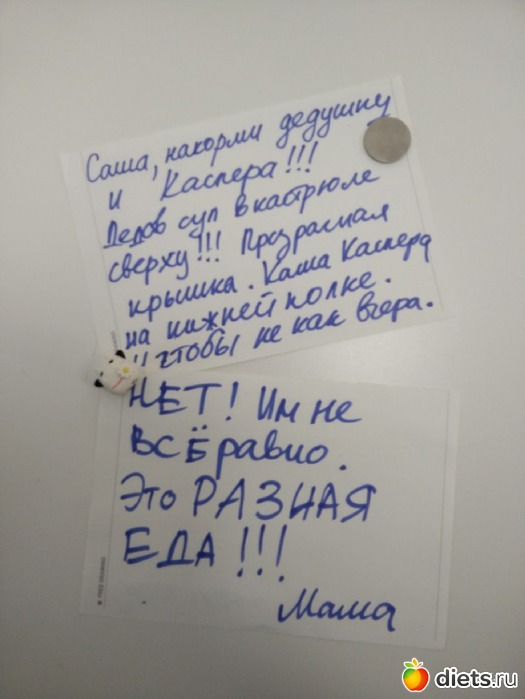 Саша, накорми дедушку
и Каспера!!!
Дедов суп в кастрюле
сверху!!! Прозрасная
крышка. Каша Каспера
на нижней полке.
И чтобы не как вчера.
НЕТ! Им не
ВСЁ равно.
Это РАЗНАЯ
ЕДА!!!
Мама
diets.ru